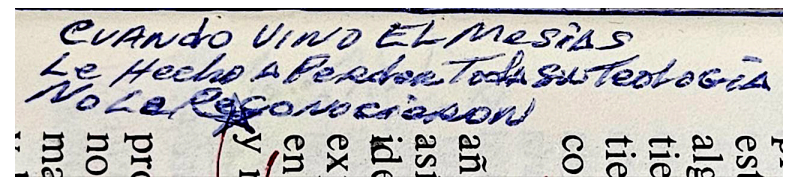 CUANDO VINO EL MESÍAS
Le Hecho A Perder Toda Su Teología
No Le Reconocieron
pro
no
ma
y
en
ex
ide
asi
añ
co
tie
tie
alg
est